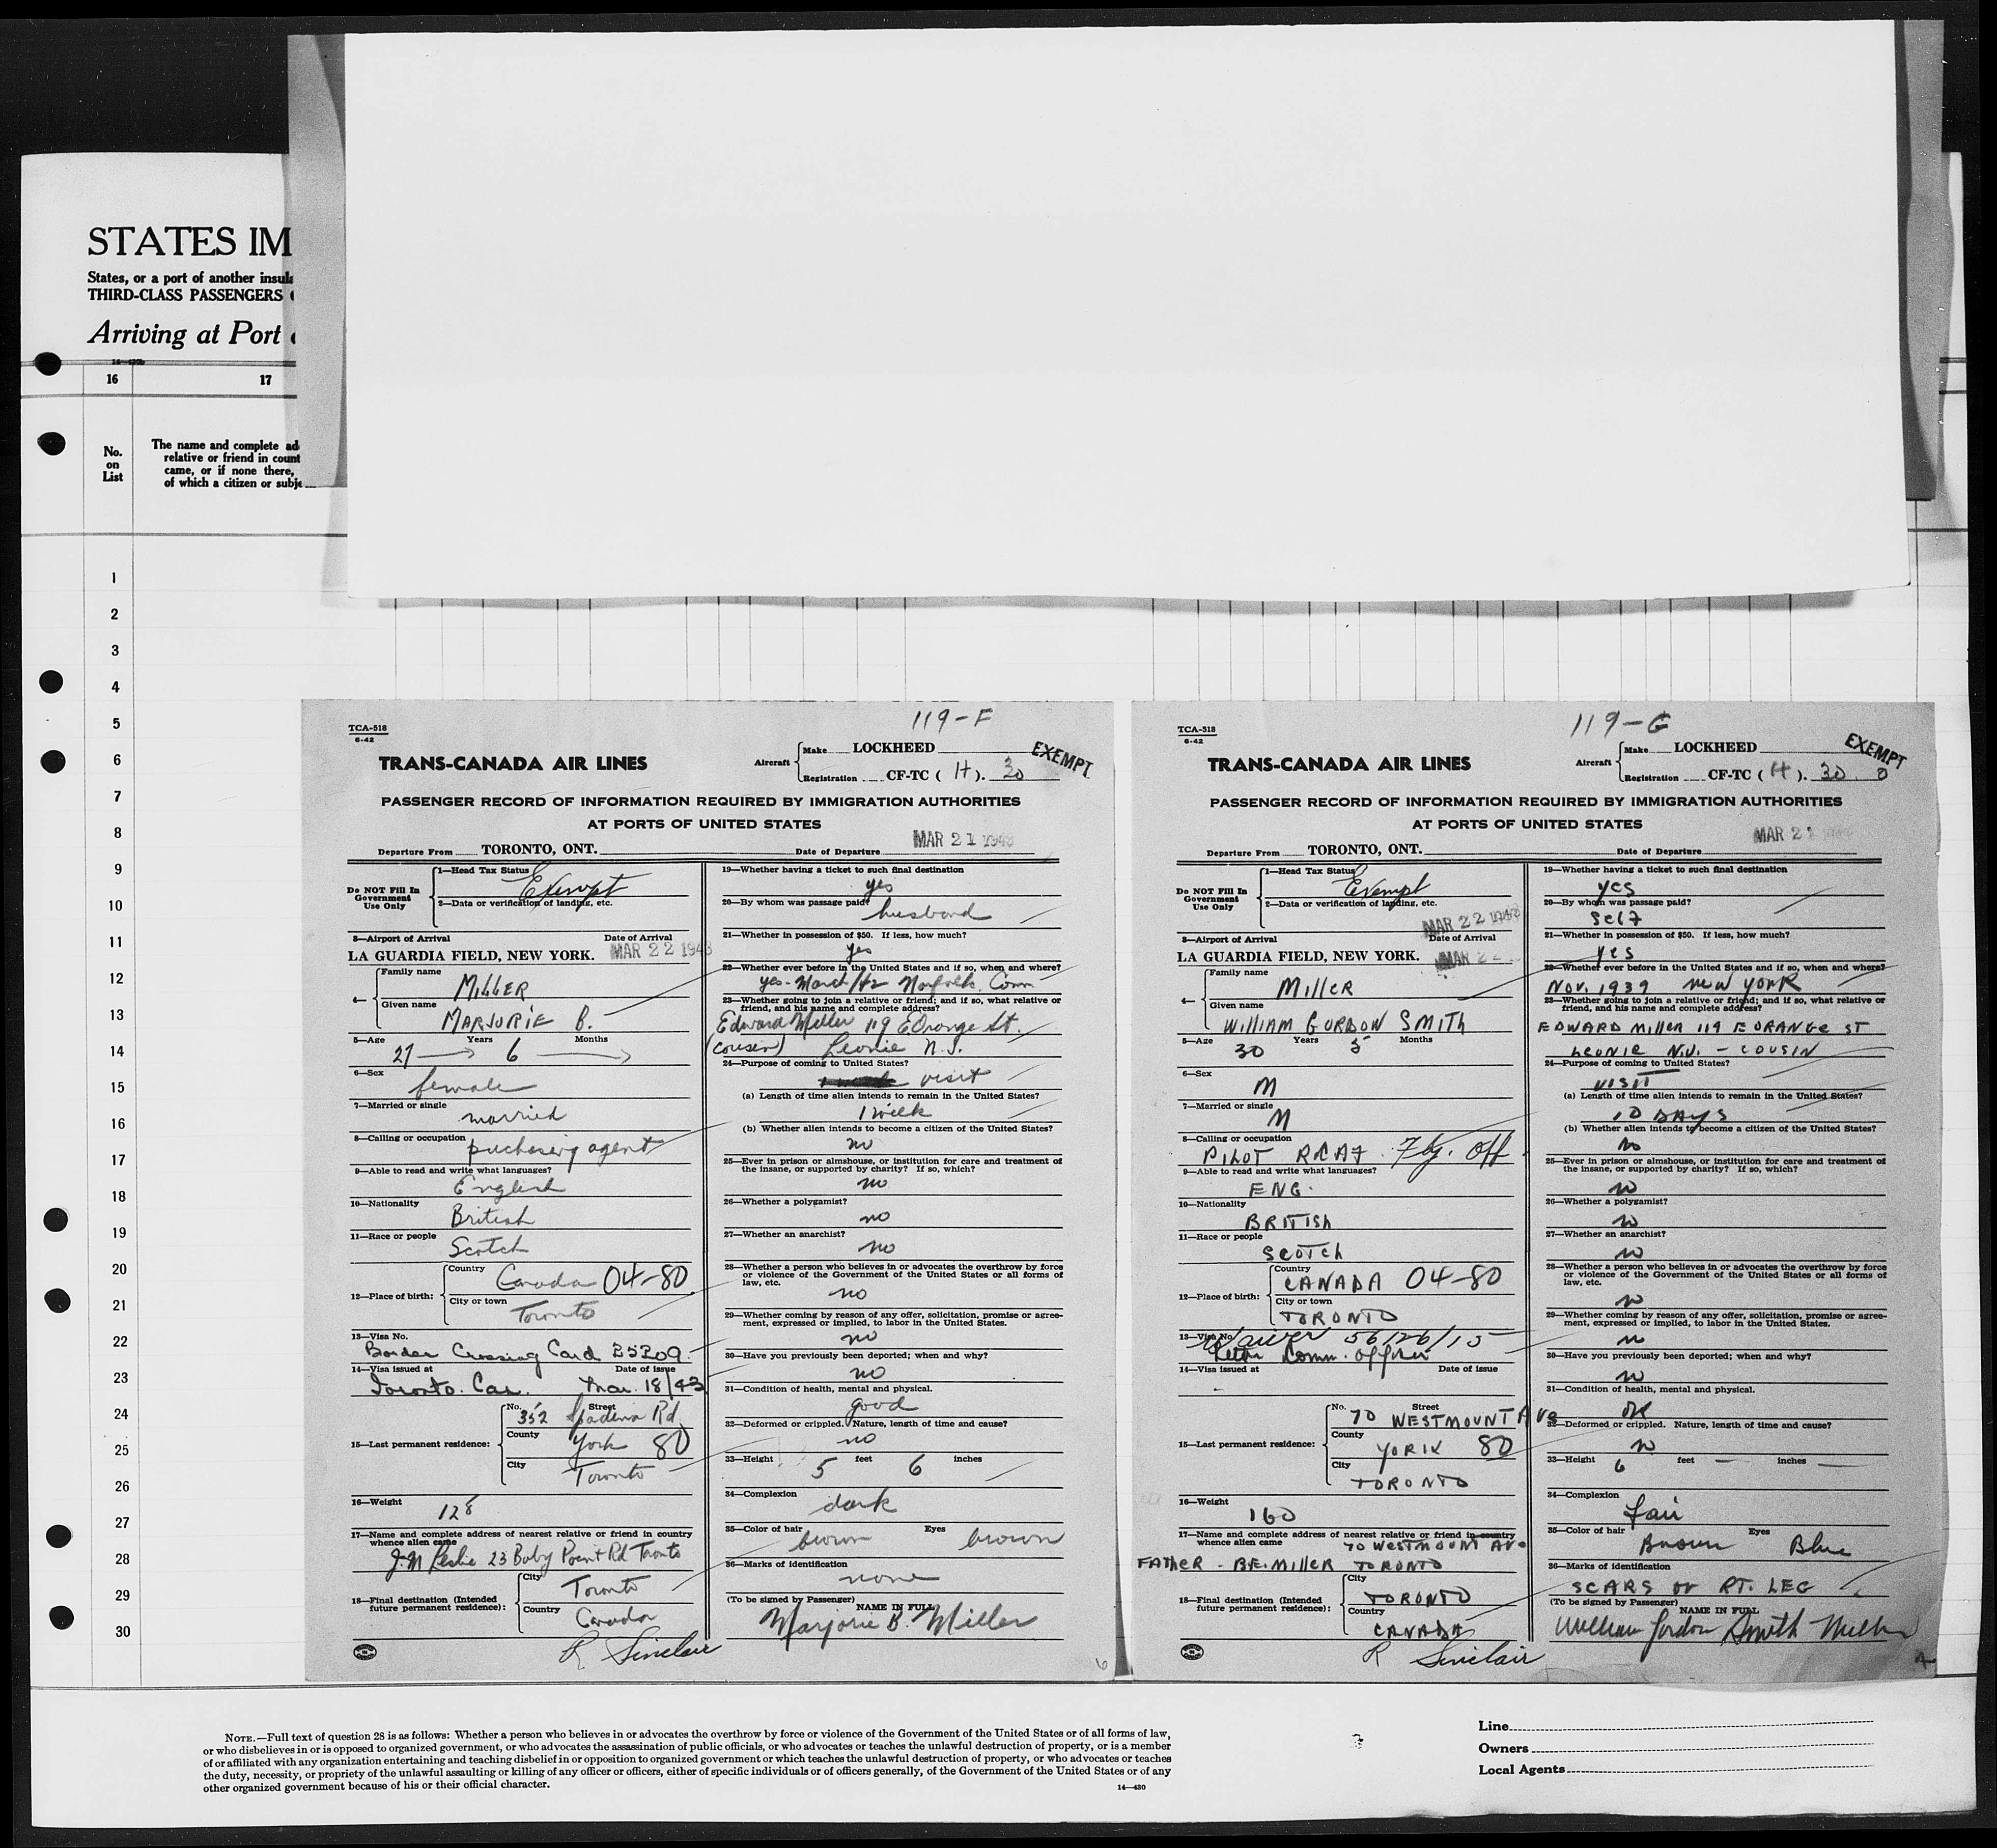 STATES IM
States, or a port of another insula
THIRD-CLASS PASSENGERS
Arriving at Port
16 17
No.
on
List
The name and complete ad
relative or friend in count
came, or if none there,
of which a citizen or subje
1
2
3
4
5
6
7
8
9
10
11
12
13
14
15
16
17
18
19
20
21
22
23
24
25
26
27
28
29
30
119-F
TCA-518
6-42
TRANS-CANADA AIR LINES
Aircraft
Make LOCKHEED
Registration CF-TC (H). 30
EXEMPT
PASSENGER RECORD OF INFORMATION REQUIRED BY IMMIGRATION AUTHORITIES
AT PORTS OF UNITED STATES
MAR 21 1943
Departure From TORONTO, ONT. Date of Departure
Do NOT Fill In
Government
Use Only
1—Head Tax Status
Exempt
2—Data or verification of landing, etc.
3—Airport of Arrival Date of Arrival
LA GUARDIA FIELD, NEW YORK. MAR 22 1943
4— Family name
MILLER
Given name
MARJORIE B.
5—Age Years Months
27 6
6—Sex
female
7—Married or single
married
8—Calling or occupation
puchasing agent
9—Able to read and write what languages?
English
10—Nationality
British
11—Race or people
Scotch
12—Place of birth:
Country
Canada 04-80
City or town
Toronto
13—Visa No.
Border Crossing Card
14—Visa issued at Date of issue
Toronto. Can. Mar. 18/43
15—Last permanent residence:
No. Street
352 Spadina Rd
County
York 80
City
Toronto
16—Weight
128
17—Name and complete address of nearest relative or friend in country
whence alien came
J.M Leslie 23 Baby Point Rd Toronto
18—Final destination (Intended
future permanent residence):
City
Toronto
Country
Canada
R Sinclair
19—Whether having a ticket to such final destination
yes
20—By whom was passage paid?
husband
21—Whether in possession of $50. If less, how much?
yes
22—Whether ever before in the United States and if so, when and where?
yes - March/42 Norfolk. Conn
23—Whether going to join a relative or friend; and if so, what relative or
friend, and his name and complete address?
Edward Miller 119 E Orange St.
(cousin) Leonie N.J.
24—Purpose of coming to United States?
visit
(a) Length of time alien intends to remain in the United States?
1 week
(b) Whether alien intends to become a citizen of the United States?
no
25—Ever in prison or almshouse, or institution for care and treatment of
the insane, or supported by charity? If so, which?
no
26—Whether a polygamist?
no
27—Whether an anarchist?
no
28—Whether a person who believes in or advocates the overthrow by force
or violence of the Government of the United States or all forms of
law, etc.
no
29—Whether coming by reason of any offer, solicitation, promise or agree-
ment, expressed or implied, to labor in the United States.
no
30—Have you previously been deported; when and why?
no
31—Condition of health, mental and physical.
good
32—Deformed or crippled. Nature, length of time and cause?
no
33—Height 5 feet 6 inches
34—Complexion
dark
35—Color of hair Eyes
brown brown
36—Marks of identification
none
(To be signed by Passenger) NAME IN FULL
Marjorie B. Miller
119-G
TCA-518
6-42
TRANS-CANADA AIR LINES
Aircraft
Make LOCKHEED
Registration CF-TC (H). 30
EXEMPT
PASSENGER RECORD OF INFORMATION REQUIRED BY IMMIGRATION AUTHORITIES
AT PORTS OF UNITED STATES
MAR 21
Departure From TORONTO, ONT. Date of Departure
Do NOT Fill In
Government
Use Only
1—Head Tax Status
Exempt
2—Data or verification of landing, etc.
MAR 22 1943
3—Airport of Arrival Date of Arrival
LA GUARDIA FIELD, NEW YORK. MAR 22
4— Family name
MILLER
Given name
WILLIAM GORDON SMITH
5—Age Years Months
30 5
6—Sex
M
7—Married or single
M
8—Calling or occupation
PILOT RCAF. Flg. Off
9—Able to read and write what languages?
ENG.
10—Nationality
BRITISH
11—Race or people
SCOTCH
12—Place of birth:
Country
CANADA 04-80
City or town
TORONTO
13—Visa No.
Waiver 56/26/15
Letter Comm. Officer
14—Visa issued at Date of issue
15—Last permanent residence:
No. Street
70 WESTMOUNT AVE
County
YORK 80
City
TORONTO
16—Weight
160
17—Name and complete address of nearest relative or friend in country
whence alien came 70 WESTMOUNT AVE
FATHER - B.E. MILLER TORONTO
18—Final destination (Intended
future permanent residence):
City
TORONTO
Country
CANADA
R Sinclair
19—Whether having a ticket to such final destination
yes
20—By whom was passage paid?
Self
21—Whether in possession of $50. If less, how much?
yes
22—Whether ever before in the United States and if so, when and where?
NOV. 1939 NEW YORK
23—Whether going to join a relative or friend; and if so, what relative or
friend, and his name and complete address?
EDWARD MILLER 119 E ORANGE ST
LEONIE N.J. - COUSIN
24—Purpose of coming to United States?
VISIT
(a) Length of time alien intends to remain in the United States?
10 DAYS
(b) Whether alien intends to become a citizen of the United States?
No
25—Ever in prison or almshouse, or institution for care and treatment of
the insane, or supported by charity? If so, which?
no
26—Whether a polygamist?
no
27—Whether an anarchist?
no
28—Whether a person who believes in or advocates the overthrow by force
or violence of the Government of the United States or all forms of
law, etc.
no
29—Whether coming by reason of any offer, solicitation, promise or agree-
ment, expressed or implied, to labor in the United States.
no
30—Have you previously been deported; when and why?
no
31—Condition of health, mental and physical.
OK
32—Deformed or crippled. Nature, length of time and cause?
no
33—Height 6 feet — inches —
34—Complexion
Fair
35—Color of hair Eyes
Brown Blue
36—Marks of identification
SCARS ON RT. LEG
(To be signed by Passenger) NAME IN FULL
William Gordon Smith Miller
NOTE.—Full text of question 28 is as follows: Whether a person who believes in or advocates the overthrow by force or violence of the Government of the United States or of all forms of law,
or who disbelieves in or is opposed to organized government, or who advocates the assassination of public officials, or who advocates or teaches the unlawful destruction of property, or is a member
of or affiliated with any organization entertaining and teaching disbelief in or opposition to organized government or which teaches the unlawful destruction of property, or who advocates or teaches
the duty, necessity, or propriety of the unlawful assaulting or killing of any officer or officers, either of specific individuals or of officers generally, of the Government of the United States or of any
other organized government because of his or their official character.
14—430
Line
Owners
Local Agents